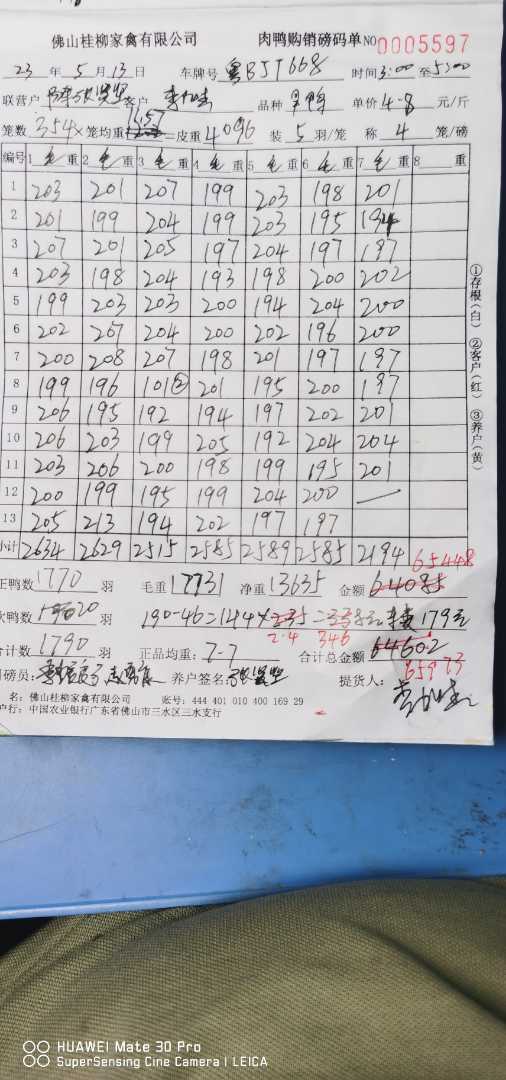 佛山桂柳家禽有限公司 肉鸭购销磅码单 NO 0005597
23 年 5 月 13 日 车牌号 粤B5T668 时间 3:00 至 5:00
联营户 客户 品种 旱鸭 单价 4-8 元/斤
笼数 354 × 笼均重 = 皮重 4096 装 5 羽/笼 称 4 笼/磅
编号 1 毛 重 2 毛 重 3 毛 重 4 毛 重 5 毛 重 6 毛 重 7 毛 重 8 重
1 203 201 207 199 203 198 201
2 201 199 204 199 203 195 194
3 207 201 205 197 204 197 197
4 203 198 204 193 198 200 202
5 199 203 203 200 194 204 200
6 202 207 204 200 202 196 200
7 200 208 207 198 201 197 197
8 199 196 101② 201 195 200 197
9 206 195 192 194 197 202 201
10 206 203 199 205 192 204 204
11 203 206 200 198 199 195 201
12 200 199 195 199 204 200 —
13 205 213 194 202 197 197
小计 2634 2629 2515 2585 2589 2585 2194 65448
正鸭数 1770 羽 毛重 17731 净重 13635 金额 64085
次鸭数 20 羽 190-46=144× 2.4 346 179元
合计数 1790 羽 正品均重: 7-7 合计总金额 64602
65973
司磅员: 养户签名: 提货人:
名: 佛山桂柳家禽有限公司 账号: 444 401 010 400 169 29
户行: 中国农业银行广东省佛山市三水区三水支行
①存根(白) ②客户(红) ③养户(黄)
HUAWEI Mate 30 Pro
SuperSensing Cine Camera | LEICA